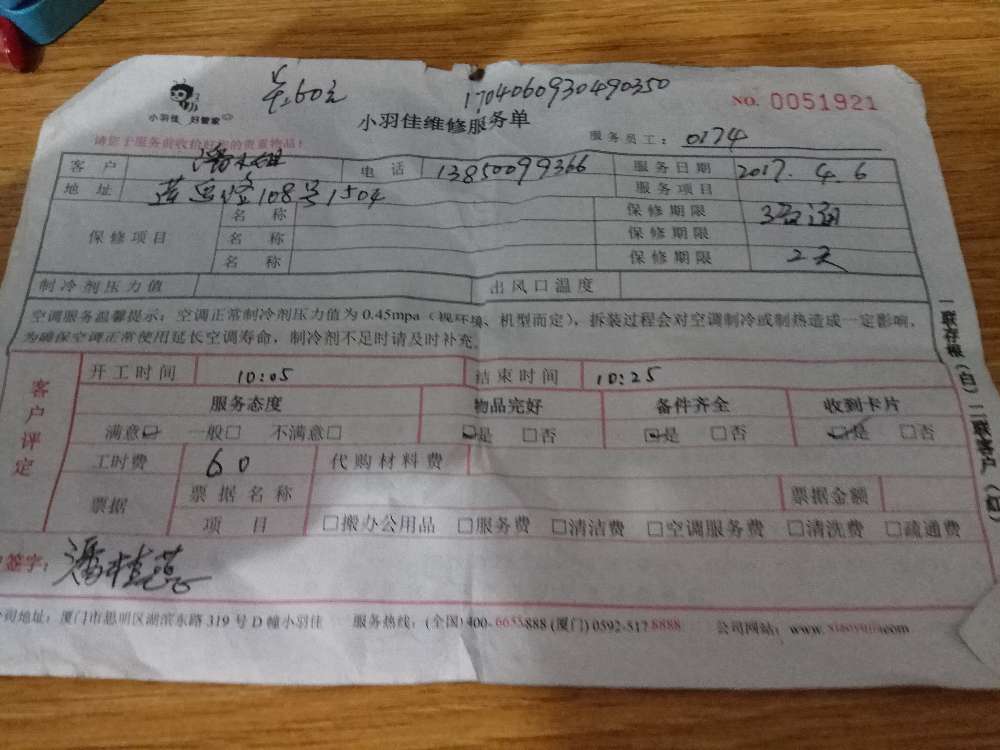 小羽佳 好管家
60元
1704060930490350
小羽佳维修服务单
NO. 0051921
请您于服务前收拾好您的贵重物品!
服务员工: 0174
客户 电话 13850099366 服务日期 2017.4.6
地址 108号1504 服务项目
保修项目 名称 保修期限
名称 保修期限
名称 保修期限 2天
制冷剂压力值 出风口温度
空调服务温馨提示: 空调正常制冷剂压力值为0.45mpa(视环境、机型而定),拆装过程会对空调制冷或制热造成一定影响,
为确保空调正常使用延长空调寿命,制冷剂不足时请及时补充.
客户评定
开工时间 10:05 结束时间 10:25
服务态度 物品完好 备件齐全 收到卡片
满意□ 一般□ 不满意□ □是 □否 □是 □否 □是 □否
工时费 60 代购材料费
票据 票据名称 票据金额
项目 □搬办公用品 □服务费 □清洁费 □空调服务费 □清洗费 □疏通费
签字: 潘桂燕
公司地址: 厦门市思明区湖滨东路319号D幢小羽佳 服务热线: (全国)400-6655888 (厦门)0592-5178888 公司网站: www.xiaoyujia.com
一联存根(白) 二联客户(红)